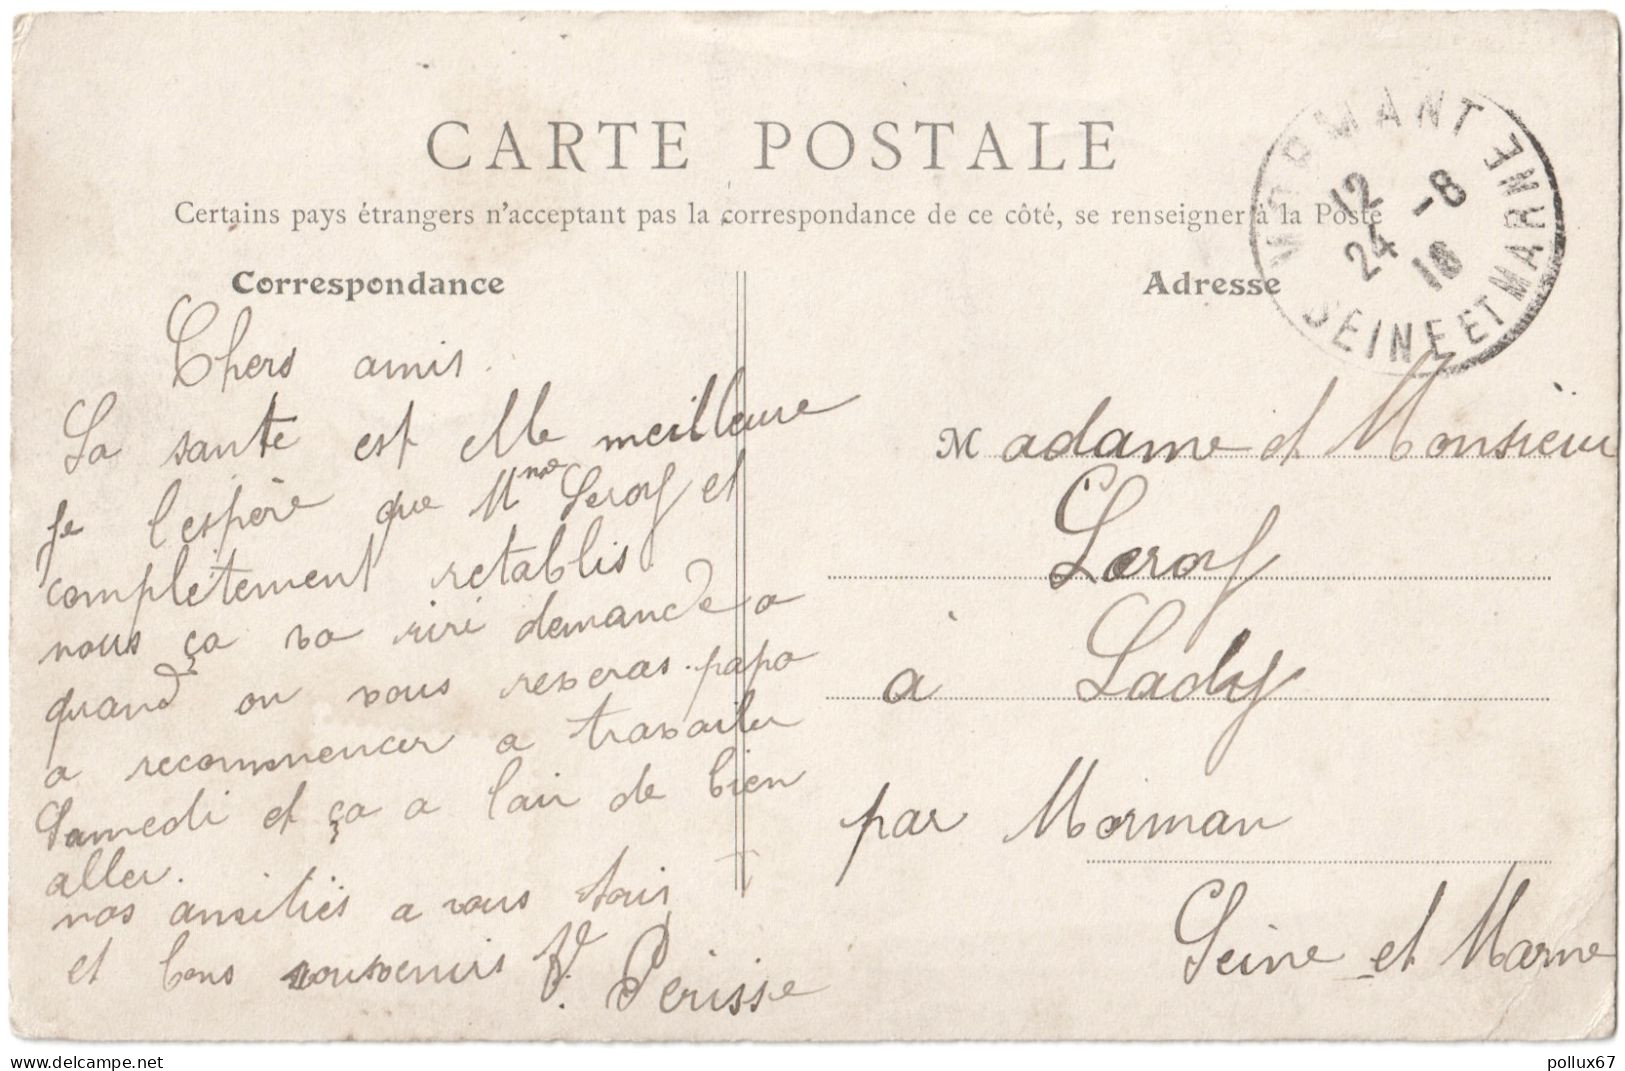 CARTE POSTALE
Certains pays étrangers n'acceptant pas la correspondance de ce côté, se renseigner à la Poste
MORMANT
12
24 -8
18
SEINE ET MARNE
Correspondance
Chers amis.
La sante est elle meilleure
je l'espère que Mme Leroy et
complètement retablis
nous ça va riri demande a
quand on vous reveras. papa
a recommencer a travailler
Samedi et ça a l'air de bien
aller.
nos amitiés a vous tous
et bons souvenirs
Perisse
Adresse
Madame et Monsieur
Leroy
à Lady
par Morman
Seine et Marne
delcampe.net
pollux67